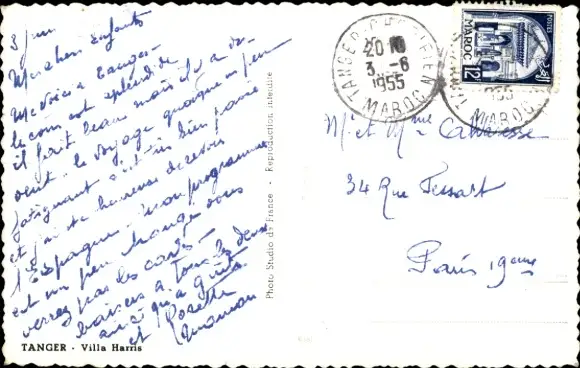 3 juin
Mes chers enfants
Me voici à Tanger
le coin est splendide
il fait beau mais il y a du
vent. le voyage quoique un peu
fatiguant s'est très bien passé
et j'ai été heureuse de revoir
l'Espagne. mon programme
est un peu changé vous
verrez par les cartes
baisers à tous les deux
ainsi qu'à
et Rosette
Maman
TANGER - Villa Harris
Photo Studio de France - Reproduction interdite
TANGER-CHERIFIEN
20
3 - 6
1955
MAROC
POSTES
MAROC
12F
955
MAROC
M. et Mme
34 Rue Pessart
Paris 19eme